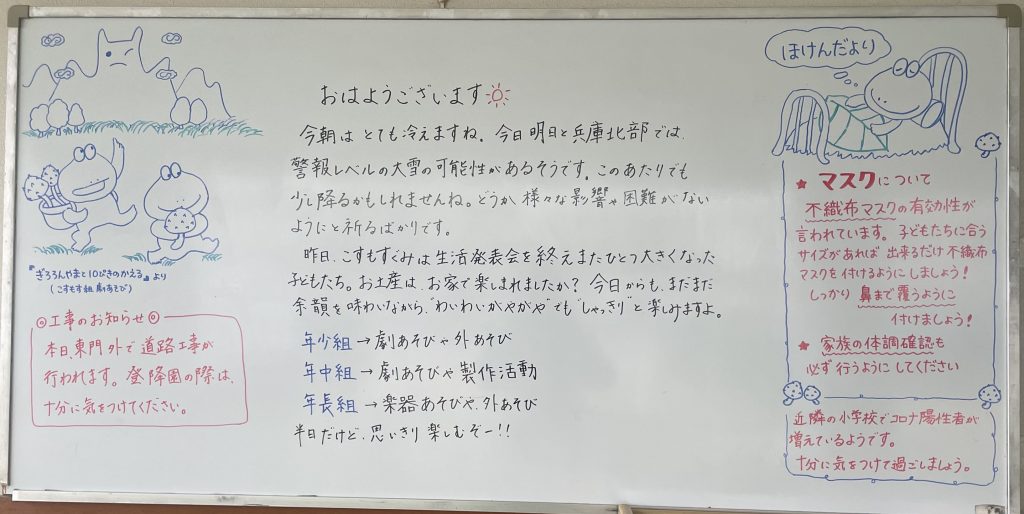 おはようございます
今朝は とても冷えますね。今日明日と兵庫北部では、
警報レベルの大雪の可能性があるそうです。このあたりでも
少し降るかもしれませんね。どうか 様々な影響や困難がない
ようにと祈るばかりです。
昨日、こすもすぐみは生活発表会を終えまたひとつ大きくなった
子どもたち。お土産は、お家で楽しまれましたか？ 今日からも、まだまだ
余韻を味わいながら、"わいわいがやがや"でも"しゃっきり"と楽しみますよ。
年少組→劇あそびや外あそび
年中組→劇あそびや製作活動
年長組→楽器あそびや、外あそび
半日だけど、思いきり楽しむぞー!!
『ぎろろんやまと10ぴきのかえる』より
(こすもす組 劇あそび)
◎工事のお知らせ◎
本日、東門外で道路工事が
行われます。登降園の際は、
十分に気をつけてください。
ほけんだより
★ マスクについて
不織布マスクの有効性が
言われています。子どもたちに合う
サイズがあれば 出来るだけ不織布
マスクを付けるようにしましょう！
しっかり 鼻まで覆うように
付けましょう！
★ 家族の体調確認も
必ず行うようにしてください
近隣の小学校でコロナ陽性者が
増えているようです。
十分に気をつけて過ごしましょう。